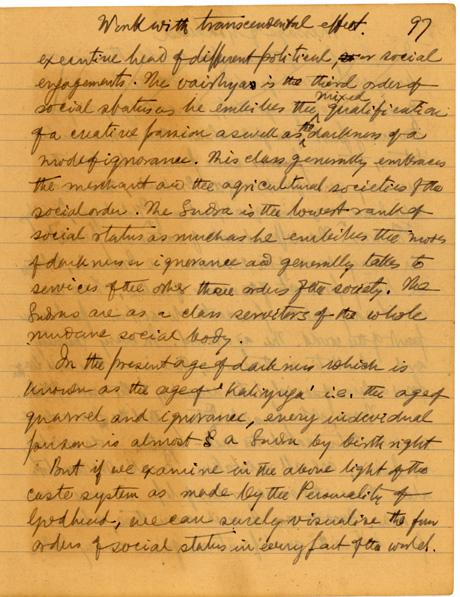 Work with transcendental effect. 97
executive head of different political, or social
engagements. The vaishyas is the third order of
social status as he embibes the mixed qualification
of a creative passion as well as the darkness of a
mode of ignorance. This class generally embraces
the merchant and the agricultural societies of the
social order. The Sudra is the lowest rank of
social status as much as he embibes the modes
of darkness or ignorance and generally takes to
services of the other three orders of the society. The
Sudras are as a class servitors of the whole
mundane social body.
In the present age of darkness which is
known as the age of 'Kaliyuga' i.e. the age of
quarrel and ignorance, every individual
person is almost a Sudra by birth right
But if we examine in the above light of the
caste system as made by the Personality of
Godhead, we can surely visualise the four
orders of social status in every part of the world.